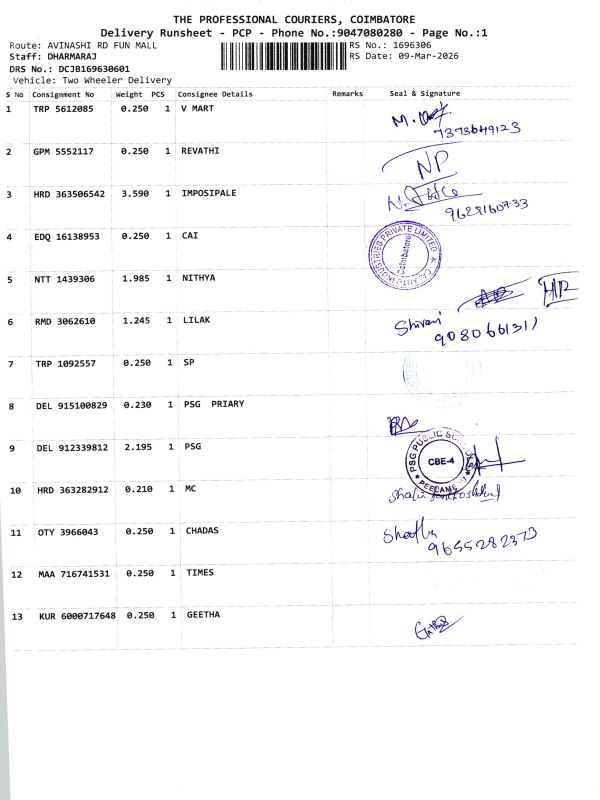 THE PROFESSIONAL COURIERS, COIMBATORE
Delivery Runsheet - PCP - Phone No.:9047080280 - Page No.:1
Route: AVINASHI RD FUN MALL RS No.: 1696306
Staff: DHARMARAJ RS Date: 09-Mar-2026
DRS No.: DCJB169630601
Vehicle: Two Wheeler Delivery
S No Consignment No Weight PCS Consignee Details Remarks Seal & Signature
1 TRP 5612085 0.250 1 V MART
7373649123
2 GPM 5552117 0.250 1 REVATHI
NP
3 HRD 363506542 3.590 1 IMPOSIPALE
9629160733
4 EDQ 16138953 0.250 1 CAI
INDUSTRIES PRIVATE LIMITED
Coimbatore
5 NTT 1439306 1.985 1 NITHYA
6 RMD 3062610 1.245 1 LILAK
9080661311
7 TRP 1092557 0.250 1 SP
8 DEL 915100829 0.230 1 PSG PRIARY
9 DEL 912339812 2.195 1 PSG
PSG PUBLIC
CBE-4
10 HRD 363282912 0.210 1 MC
11 OTY 3966043 0.250 1 CHADAS
9655282373
12 MAA 716741531 0.250 1 TIMES
13 KUR 6000717648 0.250 1 GEETHA